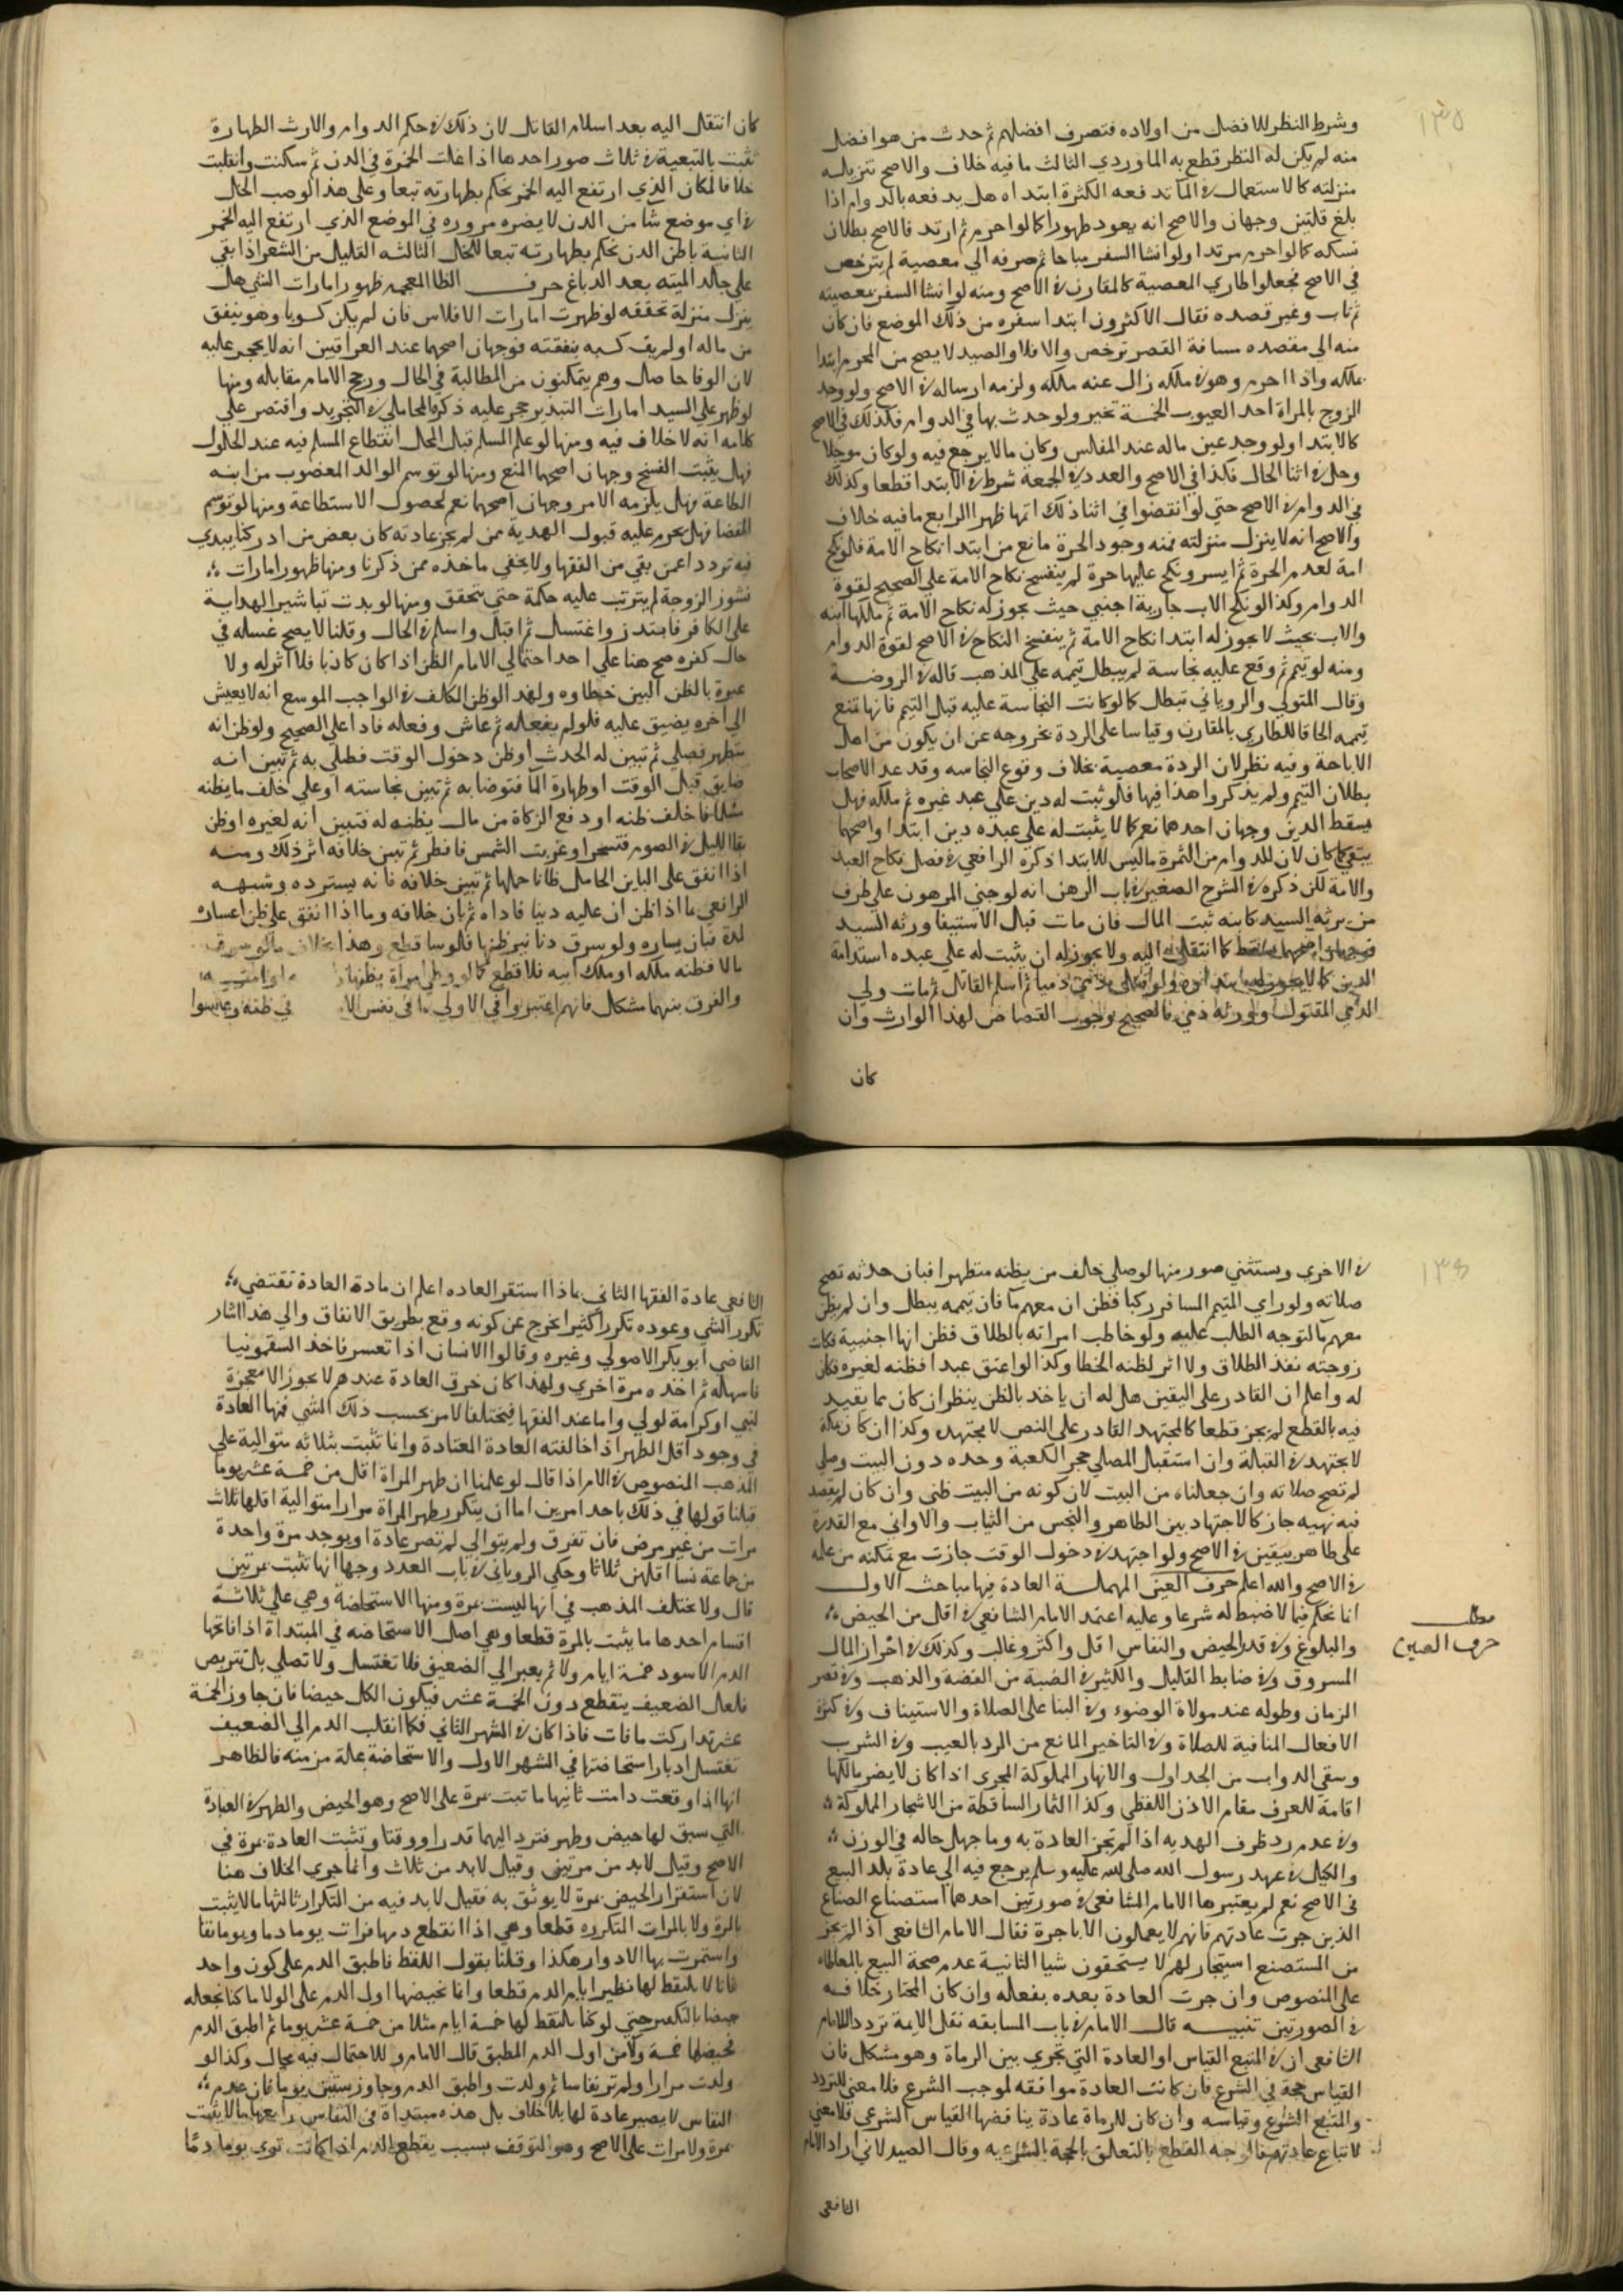 ١٣٥
وشرط النظر للافضل من اولاده فتصرف افضلهم ثم حدث من هو افضل
منه لم يكن له النظر قطع به الماوردي الثالث ما فيه خلاف والاصح تنزيله
منزلته كالاستعمال في الماء تدفعه الكثرة ابتداه هل يدفعه بالدوام اذا
بلغ قلتين وجهان والاصح انه يعود طهورا كما لو احرم ثم ارتد فالاصح بطلان
نسكه كما لو احرم مرتدا ولو انشا السفر مباحا ثم صرفه الي معصية لم يترخص
في الاصح فجعلوا الطاري المعصية كالمقارن في الاصح ومنه لو انشا السفر بمعصيته
ثم تاب وغير قصده فقال الاكثرون ابتدا سفره من ذلك الموضع فان كان
منه الي مقصده مسافة القصر ترخص والا فلا والصيد لا يصح من المحرم ابتدا
ملكه واذا احرم وهو في ملكه زال عنه ملكه ولزمه ارساله في الاصح ولو وجد
الزوج بالمراة احد العيوب الخمسة تخير ولو حدث بها في الدوام فكذلك في الاصح
كالابتدا ولو وجد عين ماله عند المفلس وكان ما لا يرجع فيه ولو كان موجلا
وحل في اثنا الحال فكذا في الاصح والعدد في الجمعة شرط في الابتدا قطعا وكذلك
في الدوام في الاصح حتي لو انفضوا في اثنا ذلك اتمها ظهرا الرابع ما فيه خلاف
والاصح انه لا ينزل منزلته فمنه وجود الحرة مانع من ابتدا نكاح الامة فلو نكح
امة لعدم الحرة ثم ايسر ونكح عليها حرة لم ينفسخ نكاح الامة علي الصحيح لقوة
الدوام وكذا لو نكح الاب جارية اجنبي حيث يجوز له نكاح الامة ثم ملكها ابنه
والاب بحيث لا يجوز له ابتدا نكاح الامة ثم ينفسخ النكاح في الاصح لقوة الدوام
ومنه لو تيمم ثم وقع عليه نجاسة لم يبطل تيممه علي المذهب قاله في الروضة
وقال المتولي والروياني تبطل كما لو كانت النجاسة عليه قبل التيمم فانها تمنع
تيممه الحاقا للطاري بالمقارن وقياسا على الردة بخروجه عن ان يكون من اهل
الاباحة وفيه نظر لان الردة معصية بخلاف وقوع النجاسه وقد عد الاصحاب
بطلان التيمم ولم يذكروا هذا فيها فلو ثبت له دين علي عبد غيره ثم ملكه فهل
يسقط الدين وجهان احدهما نعم كما لا يثبت له علي عبده دين ابتدا واصحهما
يبقي كما كان لان للدوام من الثمرة ما ليس للابتدا ذكره الرافعي في فصل نكاح العبد
والامة لكن ذكره في الشرح الصغير في باب الرهن انه لو جني المرهون علي طرف
من يرثه السيد كابنه ثبت المال فان مات قبل الاستيفا ورثه السيد
فوجهان اصحهما يسقط كما انتقل اليه ولا يجوز له ان يثبت له علي عبده استدامة
الدين كما لا يجوز له ابتداوه ولو قتل ذمي ذميا ثم اسلم القاتل ثم مات ولي
الذمي المقتول وورثه ذمي فالصحيح وجوب القصاص لهذا الوارث وان
كان
كان انتقل اليه بعد اسلام القاتل لان ذلك في حكم الدوام والارث الطهارة
تثبت بالتبعية في ثلاث صور احدها اذا غلت الخمرة في الدن ثم سكنت وانقلبت
خلا فالمكان الذي ارتفع اليه الخمر يحكم بطهارته تبعا وعلى هذا لو صب الخل
في اي موضع شا من الدن لا يضره مروره في الموضع الذي ارتفع اليه الخمر
الثانية باطن الدن يحكم بطهارته تبعا للخل الثالثه القليل من الشعر اذا بقي
علي جلد الميته بعد الدباغ حرف الظا المعجمه ظهور امارات الشي هل
ينزل منزلة تحققه لو ظهرت امارات الافلاس فان لم يكن كسوبا وهو ينفق
من ماله او لم يف كسبه بنفقته فوجهان اصحهما عند العراقيين انه لا يحجر عليه
لان الوفا حاصل وهم يتمكنون من المطالبة في الحال ورجح الامام مقابله ومنها
لو ظهر علي السيد امارات التبذير حجر عليه ذكره المحاملي في التجريد واقتصر علي
كلامه انه لا خلاف فيه ومنها لو علم المسلم قبل المحل انقطاع المسلم فيه عند الحلول
فهل يثبت الفسخ وجهان اصحهما المنع ومنها لو توسم الوالد المعضوب من ابنه
الطاعة فهل يلزمه الامر وجهان اصحهما نعم لحصول الاستطاعة ومنها لو توسم
القضا فهل يحرم عليه قبول الهدية ممن لم يجز عادته كان بعض من ادركنا يبدي
فيه ترددا عمن بقي من الفقها ولا يخفي ماخذه ممن ذكرنا ومنها ظهور امارات
نشوز الزوجة لم يترتب عليه حكمة حتى يتحقق ومنها لو بدت تباشير الهداية
على الكافر فابتدر واغتسل ثم اقبل واسلم في الحال وقلنا لا يصح غسله في
حال كفره صح هنا علي احد احتمالي الامام الظن اذا كان كاذبا فلا اثر له ولا
عبرة بالظن البين خطاوه ولهذا لو ظن المكلف في الواجب الموسع انه لا يعيش
الي اخره يضيق عليه فلو لم يفعله ثم عاش وفعله فادا علي الصحيح ولو ظن انه
متطهر فصلي ثم تبين له الحدث او ظن دخول الوقت فصلي به ثم تبين انه
ضايق قبل الوقت او طهارة الما فتوضا به ثم تبين نجاسته او علي خلف ما يظنه
مسلما فاخلف ظنه او دفع الزكاة من مال يظنه له فتبين انه لغيره او ظن
بقا الليل في الصوم فتسحر او غربت الشمس فافطر ثم تبين خلافه اثر ذلك ومنه
اذا انفق على الباين الحامل ظانا حملها ثم تبين خلافه فانه يسترده وشبهه
الرافعي ما اذا ظن ان عليه دينا فاداه ثم بان خلافه وما اذا انفق علي ظن اعساره
لمدة فبان يساره ولو سرق دنانير ظنها فلوسا قطع وهذا بخلاف ما لو سرق
مالا فظنه ملكه او ملك ابيه فلا قطع كما لو وطي امراة يظنها
والفرق بينهما مشكل فانهم اعتبروا في الاولي ما في نفس الا في ظنه وعكسوا
١٣٦
في الاخري ويستثني صور منها لو صلي خلف من يظنه متطهرا فبان حدثه تصح
صلاته ولو راي المتيمم المسافر ركبا فظن ان معهم ما فان تيممه يبطل وان لم يظن
معهم ما لتوجه الطلب عليه ولو خاطب امراته بالطلاق فظن انها اجنبية فكانت
زوجته نفذ الطلاق ولا اثر لظنه الخطا وكذا لو اعتق عبدا فظنه لغيره فكان
له واعلم ان القادر على اليقين هل له ان ياخذ بالظن ينظر ان كان مما يقيد
فيه بالقطع لم يجز قطعا كالمجتهد القادر علي النص لا يجتهد وكذا ان كان بمكة
لا يجتهد في القبلة وان استقبل المصلي حجر الكعبة وحده دون البيت وصلي
لم تصح صلاته وان جعلناه من البيت لان كونه من البيت ظني وان كان لم يقصد
فيه نهيه جاز كالاجتهاد بين الطاهر والنجس من الثياب والاواني مع القدرة
على طاهر بيقين في الاصح ولو اجتهد في دخول الوقت جازت مع تمكنه من علمه
في الاصح والله اعلم حرف العين المهملة العادة فيها مباحث الاول
مطلب
حرف العين
انما تحكم فيما لا ضبط له شرعا وعليه اعتمد الامام الشافعي في اقل من الحيض
والبلوغ وفي قدر الحيض والنفاس اقل واكثر وغالب وكذلك في احراز المال
المسروق وفي ضابط القليل والكثير في الضبة من الفضة والذهب وفي قصر
الزمان وطوله عند موالاة الوضوء وفي البنا على الصلاة والاستيناف وفي كثرة
الافعال المنافية للصلاة وفي التاخير المانع من الرد بالعيب وفي الشرب
وسقى الدواب من الجداول والانهار المملوكة المجرى اذا كان لا يضر مالكها
اقامة للعرف مقام الاذن اللفظي وكذا الثمار الساقطة من الاشجار المملوكة
وفي عدم رد ظرف الهديه اذا لم تجز العادة به وما جهل حاله في الوزن
والكيل في عهد رسول الله صلى الله عليه وسلم يرجع فيه الي عادة بلد البيع
في الاصح نعم لم يعتبرها الامام الشافعي في صورتين احدهما استصناع الصناع
الذين جرت عادتهم فانهم لا يعملون الا باجرة فقال الامام الشافعي اذا لم يجز
من المستصنع استيجار لهم لا يستحقون شيا الثانية عدم صحة البيع بالمعاطاه
على المنصوص وان جرت العادة بعده بفعله وان كان المختار خلافه
في الصورتين تنبيه قال الامام في باب المسابقه نقل الايمة تردد الامام
الشافعي ان في المتبع القياس او العادة التي تجري بين الرماة وهو مشكل فان
القياس حجة في الشرع فان كانت العادة موافقه لموجب الشرع فلا معني للتردد
والمتبع الشرع وقياسه وان كان للرماة عادة يناقضها القياس الشرعي فلا معني
لاتباع عادتهم فالوجه القطع بالتعلق بالحجة الشرعيه وقال الصيدلاني اراد الامام
الشافعي
الشافعي عادة الفقها الثاني بماذا استقر العاده اعلم ان مادة العادة تقتضي
تكرر الشي وعوده تكررا كثيرا يخرج عن كونه وقع بطريق الاتفاق والي هذا اشار
القاضي ابو بكر الاصولي وغيره وقالوا الانسان اذا تعسر فاخذ السقمونيا
فاسهله ثم اخذه مرة اخري ولهذا كان خرق العادة عندهم لا يجوز الا معجزة
لنبي او كرامة لولي واما عند الفقها فيختلف الامر بحسب ذلك الشي فمنها العادة
في وجود اقل الطهر اذا خالفته العادة المعتادة وانما تثبت بثلاثه متوالية علي
المذهب المنصوص في الام اذا قال لو علمنا ان طهر المراة اقل من خمسة عشر يوما
قبلنا قولها في ذلك باحد امرين اما ان يتكرر طهر المراة مرارا متوالية اقلها ثلاث
مرات من غير مرض فان تفرق ولم يتوالي لم تصر عادة او يوجد مرة واحدة
من جماعة نسا اقلهن ثلاثا وحكي الروياني في باب العدد وجها انها تثبت بمرتين
قال ولا يختلف المذهب في انها ليست بمرة ومنها الاستحاضة وهي علي ثلاثة
اقسام احدها ما يثبت بالمرة قطعا وهي اصل الاستحاضه في المبتداة اذا فاتحها
الدم الاسود خمسة ايام ولا ثم يعبر الي الضعيف فلا تغتسل ولا تصلي بل تتربص
فلعل الضعيف ينقطع دون الخمسة عشر فيكون الكل حيضا فان جاوز الخمسة
عشر تداركت ما فات فاذا كان في الشهر الثاني فكما انقلب الدم الي الضعيف
تغتسل ادبار استحاضتها في الشهر الاول والاستحاضة علة مزمنه فالظاهر
انها اذا وقعت دامت ثانيها ما تثبت بمرة على الاصح وهو الحيض والطهر في العبادة
التي سبق لها حيض وطهر فترد اليهما قدرا ووقتا وتثبت العادة بمرة في
الاصح وقيل لا بد من مرتين وقيل لابد من ثلاث وانما جري الخلاف هنا
لان استقرار الحيض بمرة لا يوثق به فقيل لا بد فيه من التكرار ثالثها ما لا يثبت
بالمرة ولا بالمرات المتكرره قطعا وهي اذا انقطع دمها فرات يوما دما ويوما نقا
واستمرت بها الادوار هكذا وقلنا بقول اللقط فاطبق الدم على كون واحد
فانا لا نلتقط لها نظير ايام الدم قطعا وانما نحيضها اول الدم على الولا ما كنا نجعله
حيضا بالتلفيق حتي لو كنا نلتقط لها خمسة ايام مثلا من خمسة عشر يوما ثم اطبق الدم
فحيضها خمسة ولا من اول الدم المطبق قال الامام وللاحتمال فيه مجال وكذا لو
ولدت مرارا ولم تر نفاسا ثم ولدت واطبق الدم وجاوز ستين يوما فان عدم
النفاس لا يصير عادة لها بلا خلاف بل هذه مبتداة في النفاس رابعها ما لا يثبت
بمرة ولا مرات على الاصح وهو التوقف بسبب يقطع الدم اذا كانت تري يوما دما